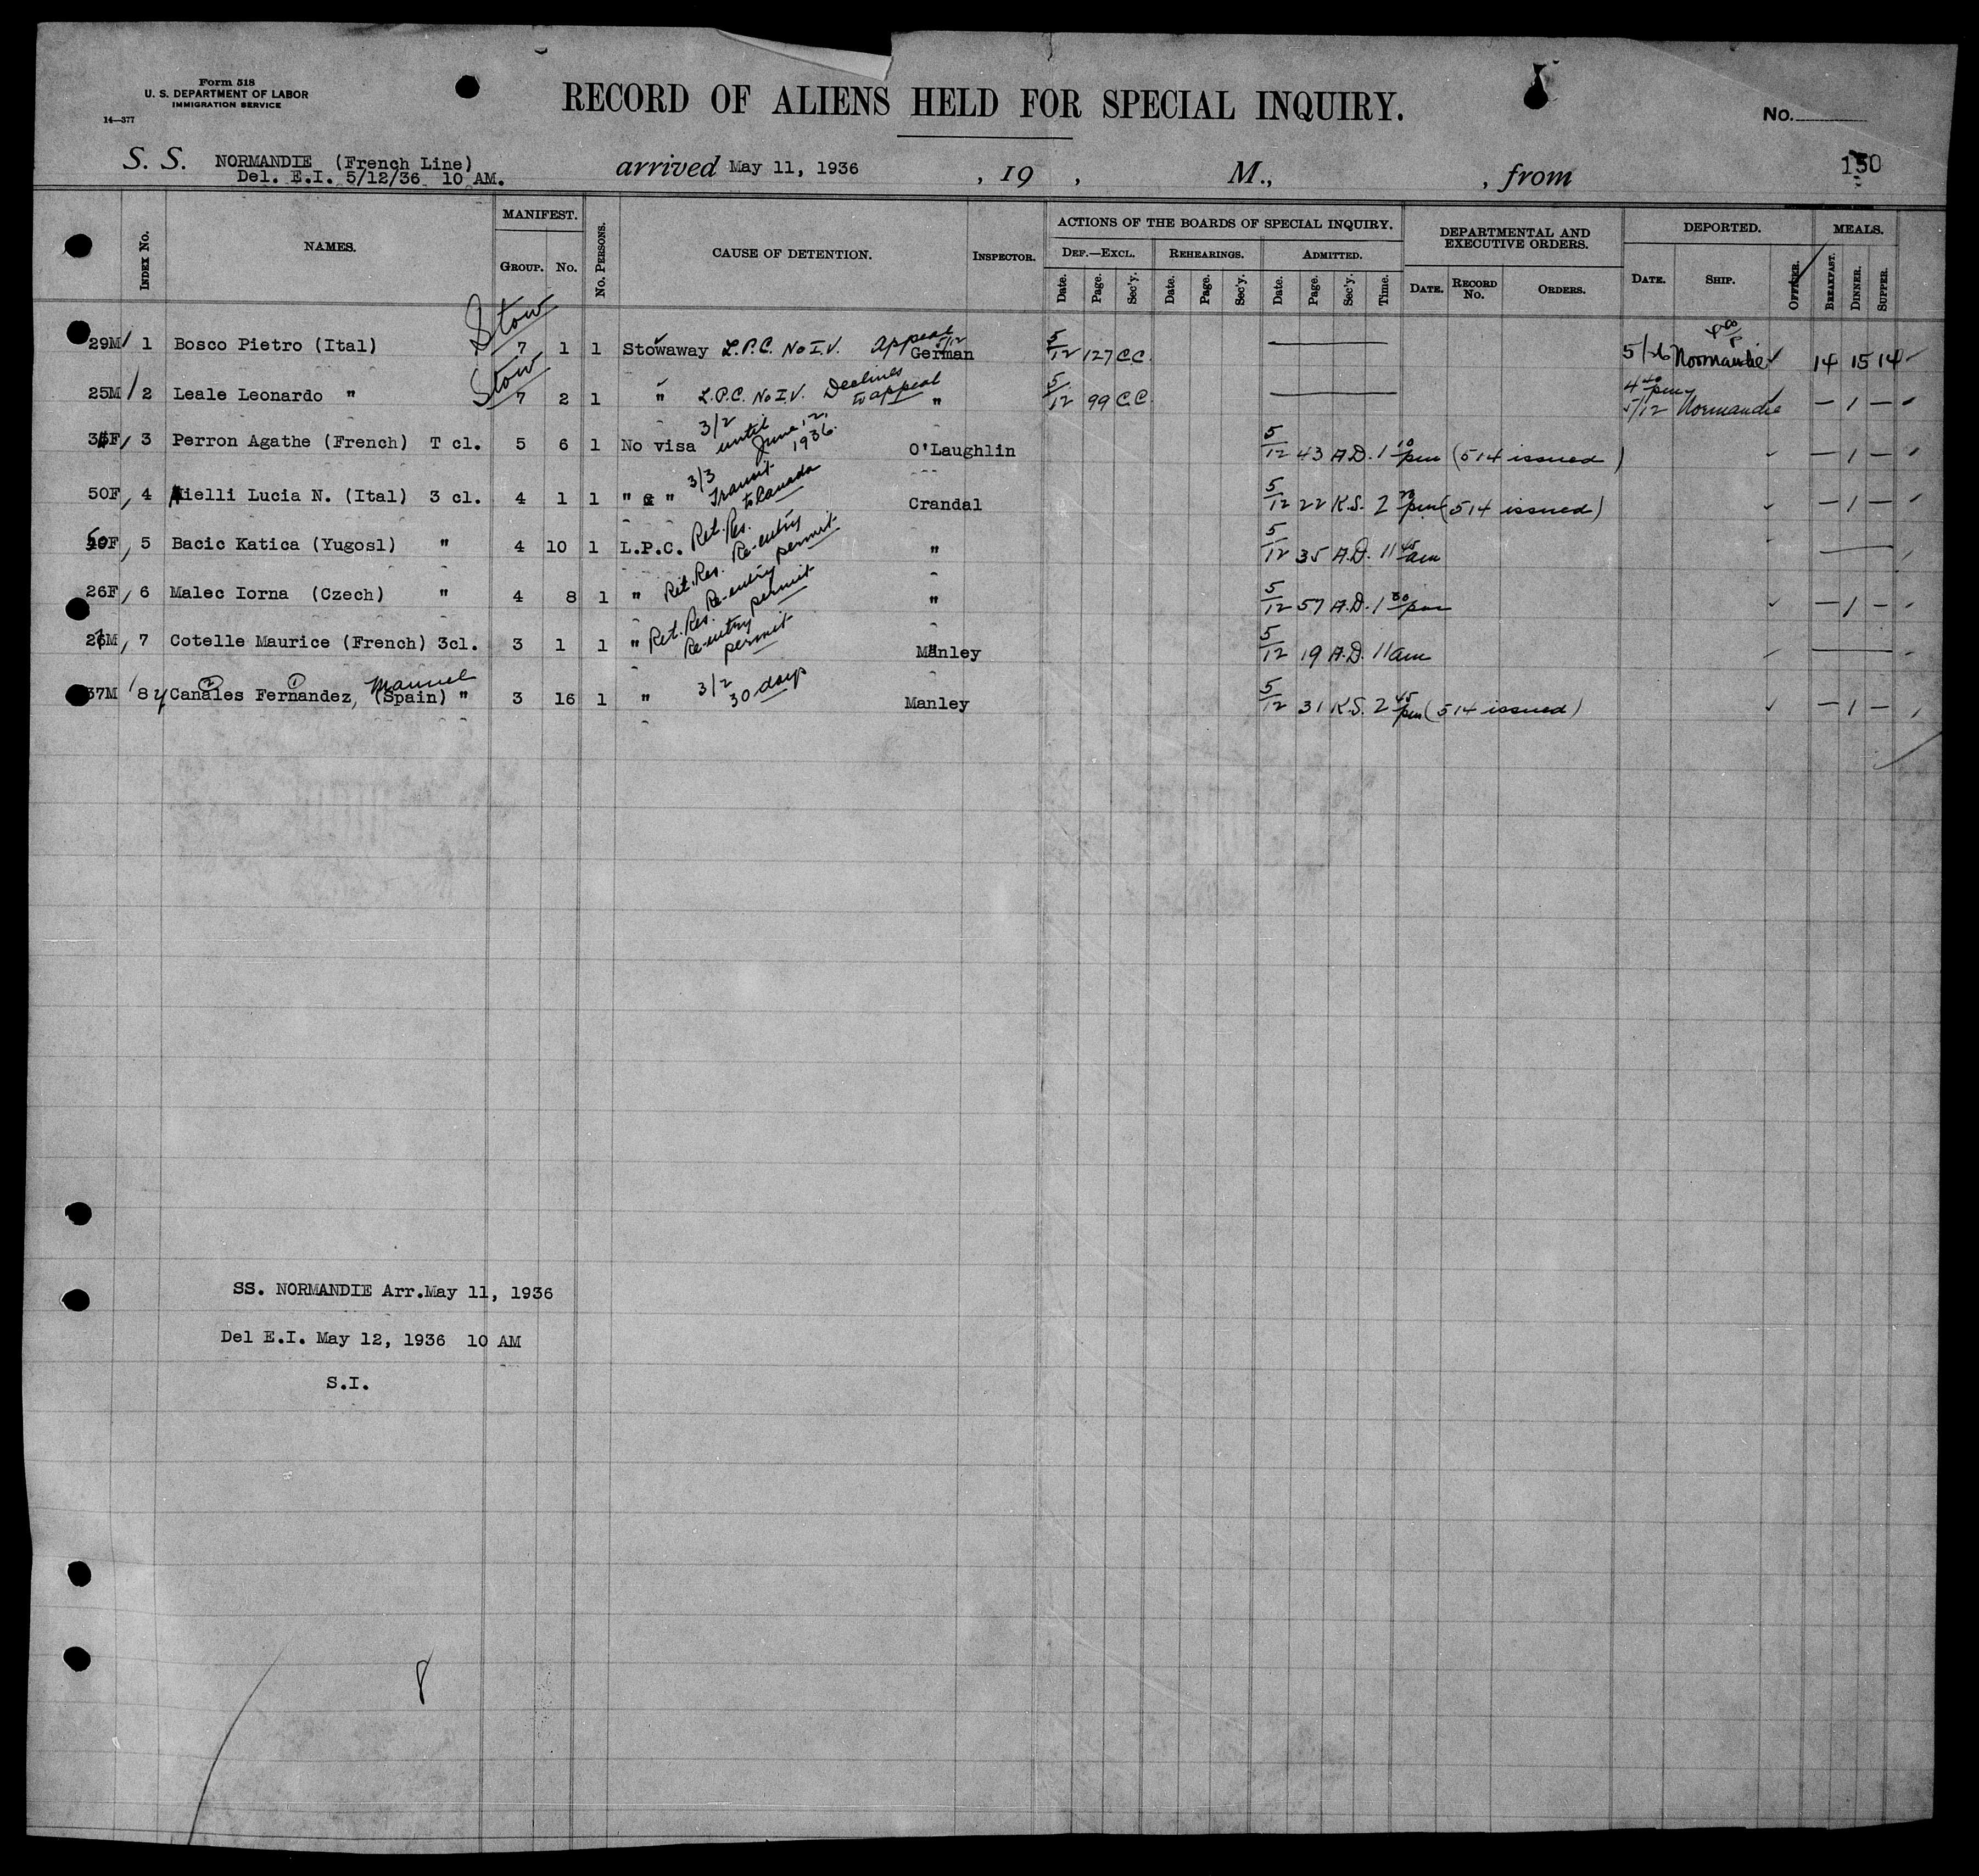 Form 518
U. S. DEPARTMENT OF LABOR
IMMIGRATION SERVICE
14—377
RECORD OF ALIENS HELD FOR SPECIAL INQUIRY.
No.
S. S. NORMANDIE (French Line) arrived May 11, 1936 , 19 , M., , from
Del. E.I. 5/12/36 10 AM.
130
INDEX No. NAMES. MANIFEST. GROUP. No. No. PERSONS. CAUSE OF DETENTION. INSPECTOR. ACTIONS OF THE BOARDS OF SPECIAL INQUIRY. DEF.—EXCL. Date. Page. Sec'y. REHEARINGS. Date. Page. Sec'y. ADMITTED. Date. Page. Sec'y. Time. DEPARTMENTAL AND EXECUTIVE ORDERS. DATE. RECORD No. ORDERS. DEPORTED. DATE. SHIP. OFFICER. MEALS. BREAKFAST. DINNER. SUPPER.
29M 1 Bosco Pietro (Ital) Stow 7 1 1 Stowaway L.P.C. No I.V. Appeal 5/12 German 5/12 127 C.C. 5/26 Normandie 14 15 14
25M 2 Leale Leonardo " Stow 7 2 1 " L.P.C. No I.V. Declines to appeal " 5/12 99 C.C. 4 40 pm 5/12 Normandie — 1 —
3 Perron Agathe (French) T cl. 5 6 1 No visa 3/2 until June 12, 1936. O'Laughlin 5/12 43 A.D. 1 10 pm (514 issued)— 1 —
50F 4 ielli Lucia N. (Ital) 3 cl. 4 1 1 " " 3/3 Transit to Canada Crandal 5/12 22 K.S. 2 20 pm (514 issued) — 1 —
50F 5 Bacic Katica (Yugosl) " 4 10 1 L.P.C. Ret. Res. Re-entry permit " 5/12 35 A.D. 11 45 am
26F 6 Malec Iorna (Czech) " 4 8 1 " Ret. Res. Re-entry permit " 5/12 57 A.D. 1 30 pm — 1 —
27M 7 Cotelle Maurice (French) 3cl. 3 1 1 " Ret. Res. Re-entry permit Manley 5/12 19 A.D. 11 am
37M 8 Canales Fernandez, Manuel (Spain) " 3 16 1 " 3/2 30 days Manley 5/12 31 K.S. 2 45 pm (514 issued) — 1 —
SS. NORMANDIE Arr.May 11, 1936
Del E.I. May 12, 1936 10 AM
S.I.
8